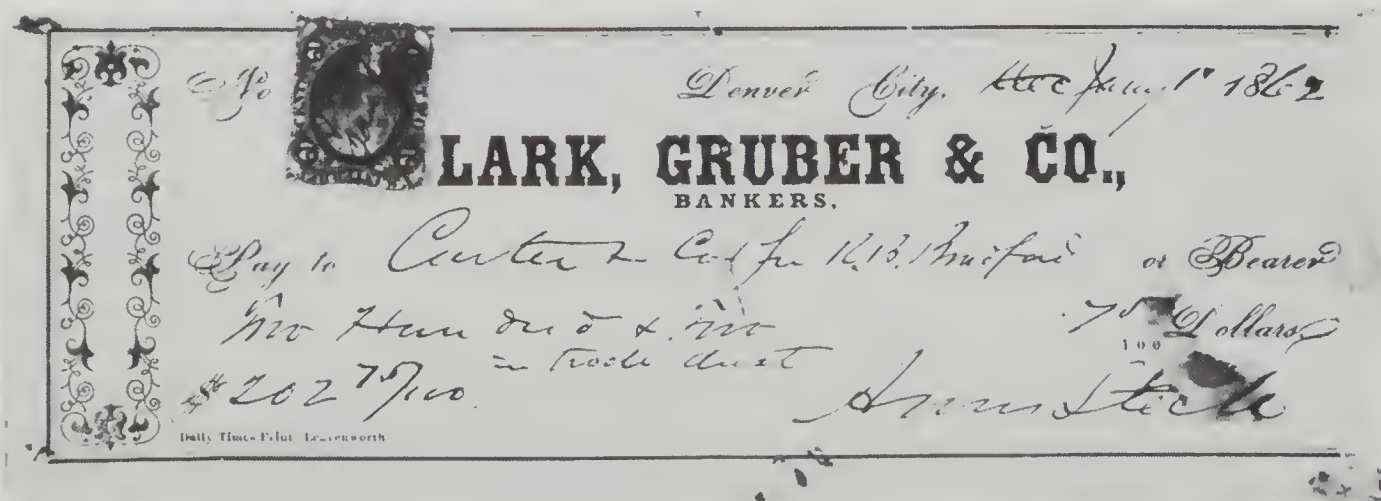 No Denver City, Jany 1st 1862
LARK, GRUBER & CO.,
BANKERS.
Pay to Carter & Co for R.B. Bradford or Bearer
Two Hundred & Two 75/100 Dollars,
in trade dust
$202 75/100
Daily Times Print Leavenworth